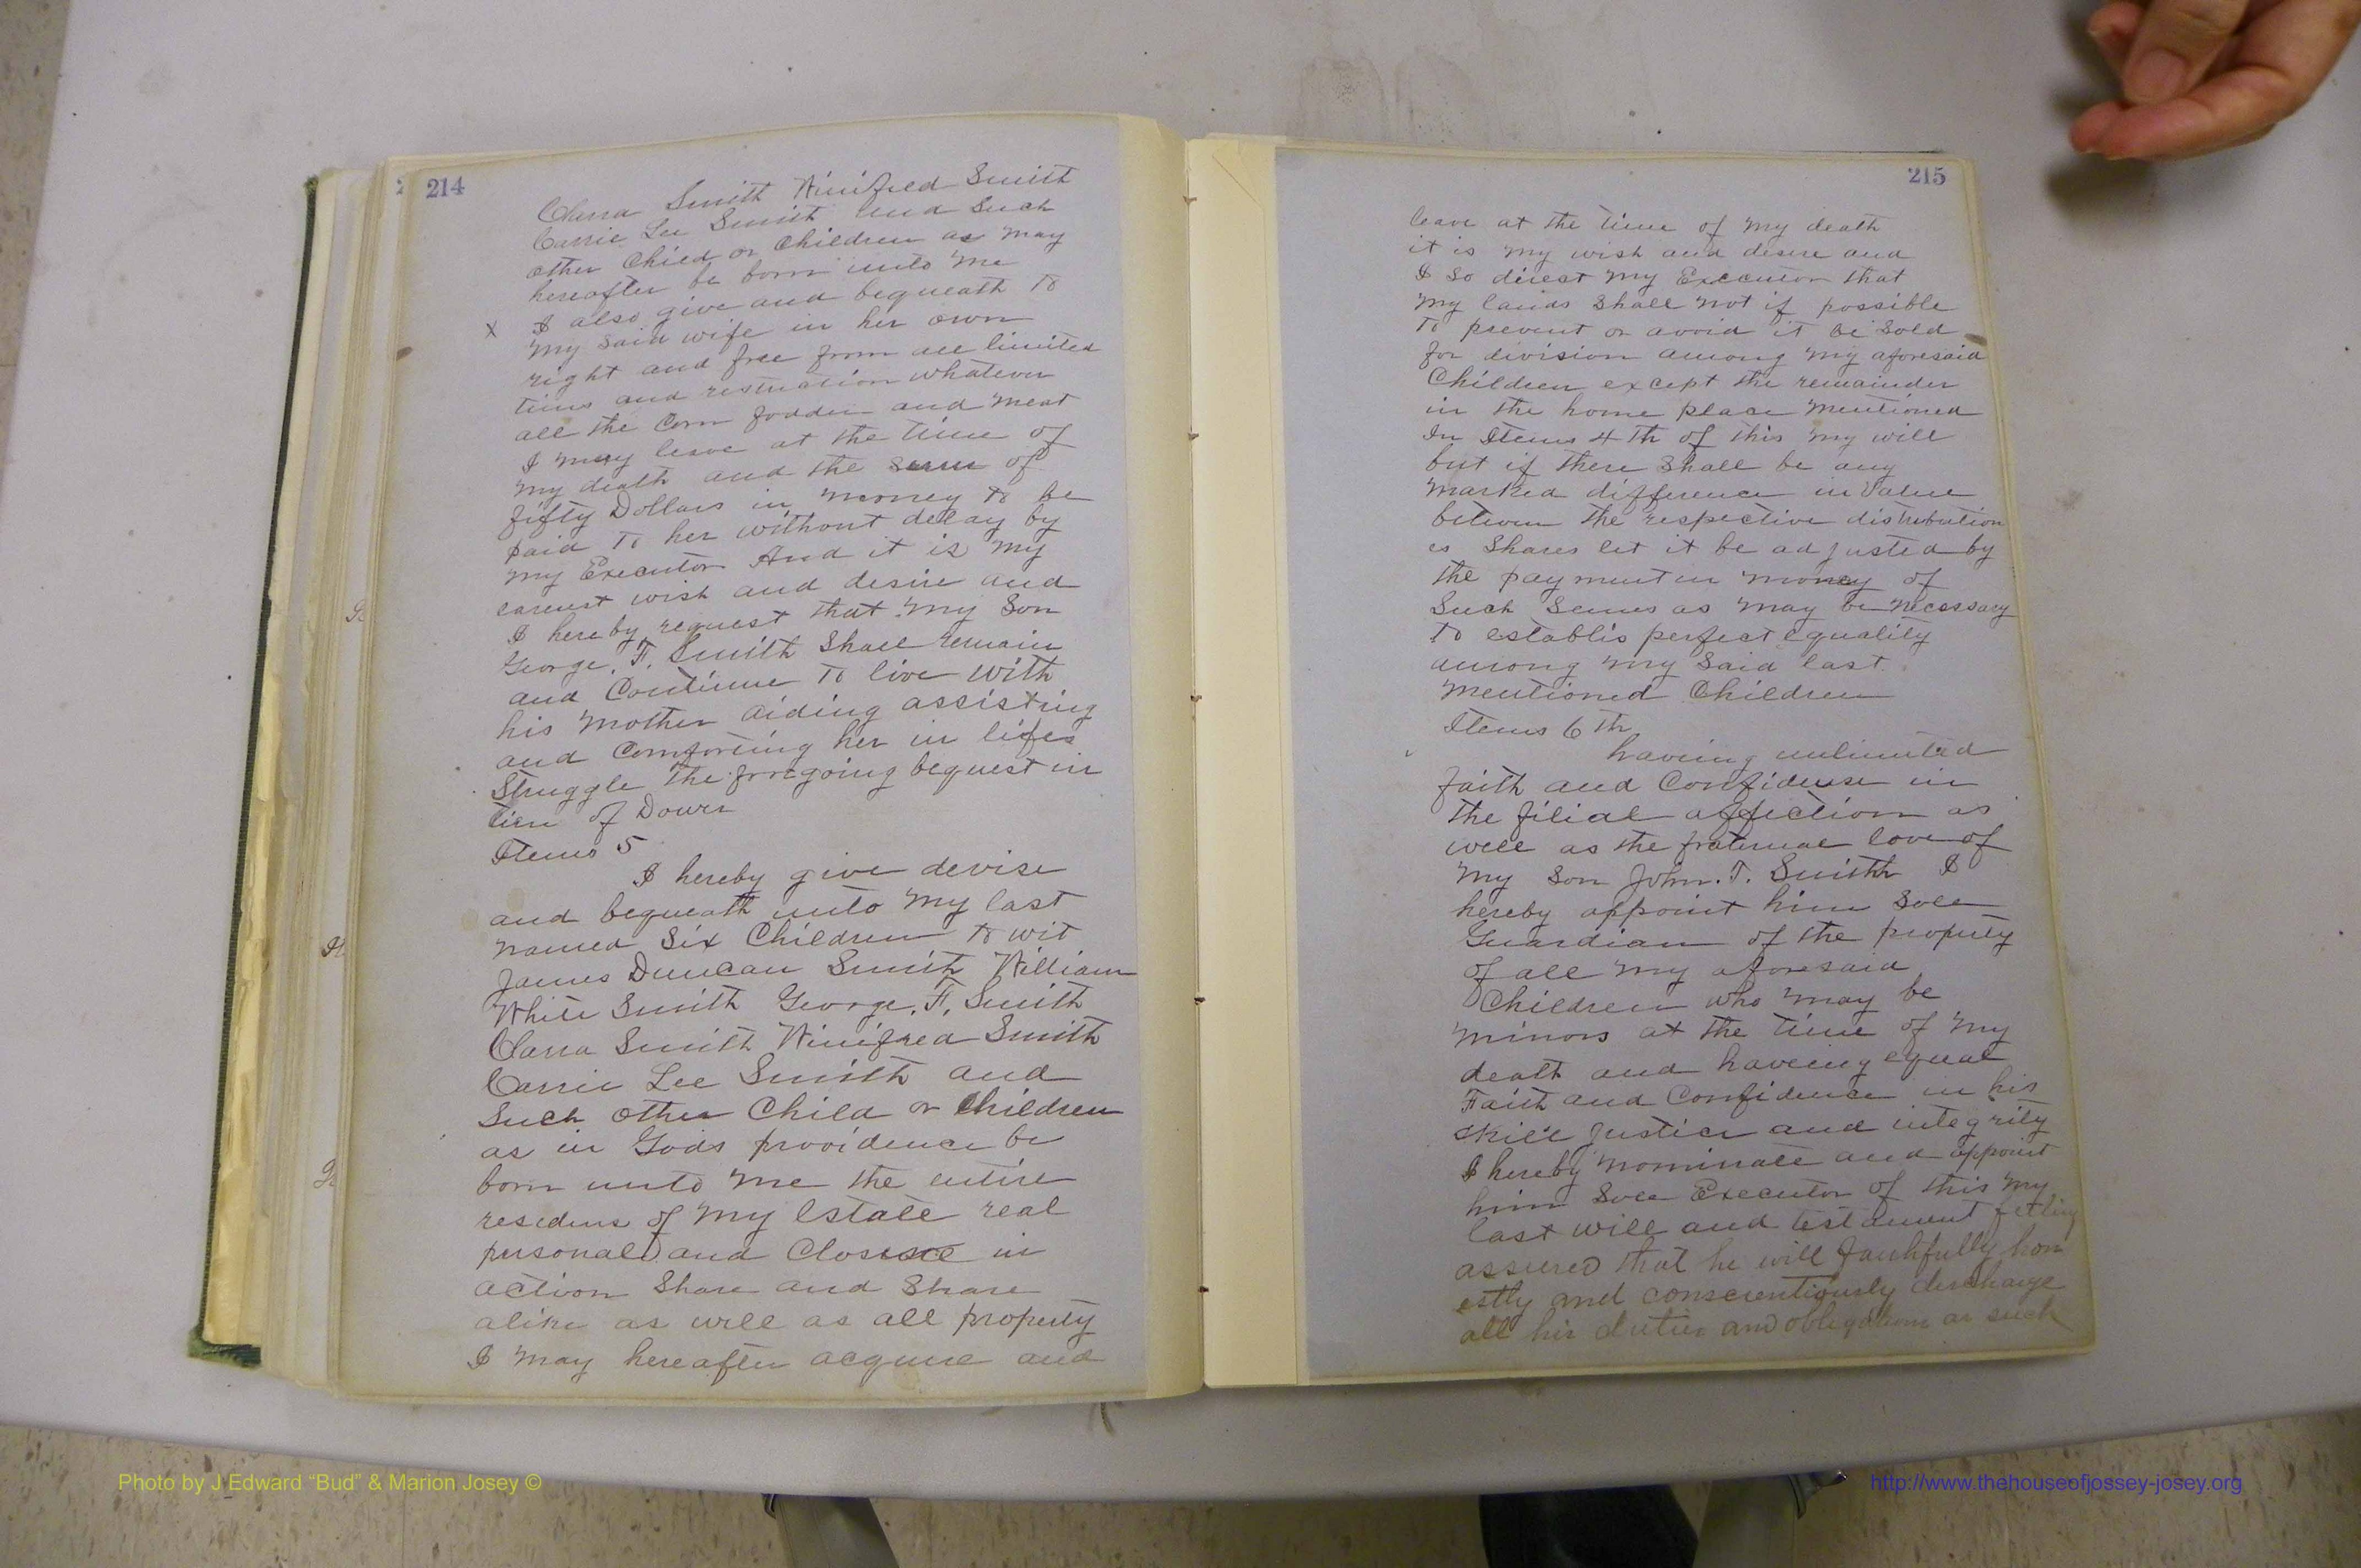 214
Clara Smith Winifred Smith
Carrie Lee Smith and Such
other Child or Children as may
hereafter be born unto me
x I also give and bequeath to
my said wife in her own
right and free from all limited
tions and restruction whatever
all the Corn fodder and meat
I may leave at the time of
my death and the sum of
fifty Dollars in money to be
paid to her without delay by
my Executor And it is my
earnest wish and desire and
I hereby request that my Son
George. F. Smith Shall remain
and Continue to live with
his mother aiding assisting
and Comforting her in lifes
Struggle the forgoing bequest in
lieu of Dower
Items 5
I hereby give devise
and bequeath unto my last
named Six Children to wit
James Duncan Smith William
White Smith George. F. Smith
Clara Smith Winifred Smith
Carrie Lee Smith and
Such other Child or Children
as in Gods providence be
born unto me the entire
resedius of my Estate real
personal and in
action Share and Share
alike as well as all property
I may hereafter acquire and
215
leave at the time of my death
it is my wish and desire and
I so direct my Executor that
my lands Shall not if possible
to prevent or avoid it be Sold
for division among my aforesaid
Children except the remainder
in the home place mentioned
In Items 4th of this my will
but if there Shall be any
marked difference in Value
between the respective distribution
es Shares let it be adjusted by
the payment in money of
Such Sums as may be necessary
to establis perfect equality
among my Said last
mentioned Children
Items 6th
having unlimited
faith and Confidense in
the filial affection as
well as the fraternal love of
my Son John. T. Smith I
hereby appoint him Sole
Guardian of the property
of all my aforesaid
Children who may be
minors at the time of my
death and haveing equal
Faith and Confidence in his
skill justice and integrity
I hereby nominate and appoint
him Sole Executor of this my
last will and testament feeling
assured that he will faithfully hon
estly and conscientiously discharge
all his duties and obligations as such
Photo by J Edward “Bud” & Marion Josey ©
http://www.thehouseofjossey-josey.org